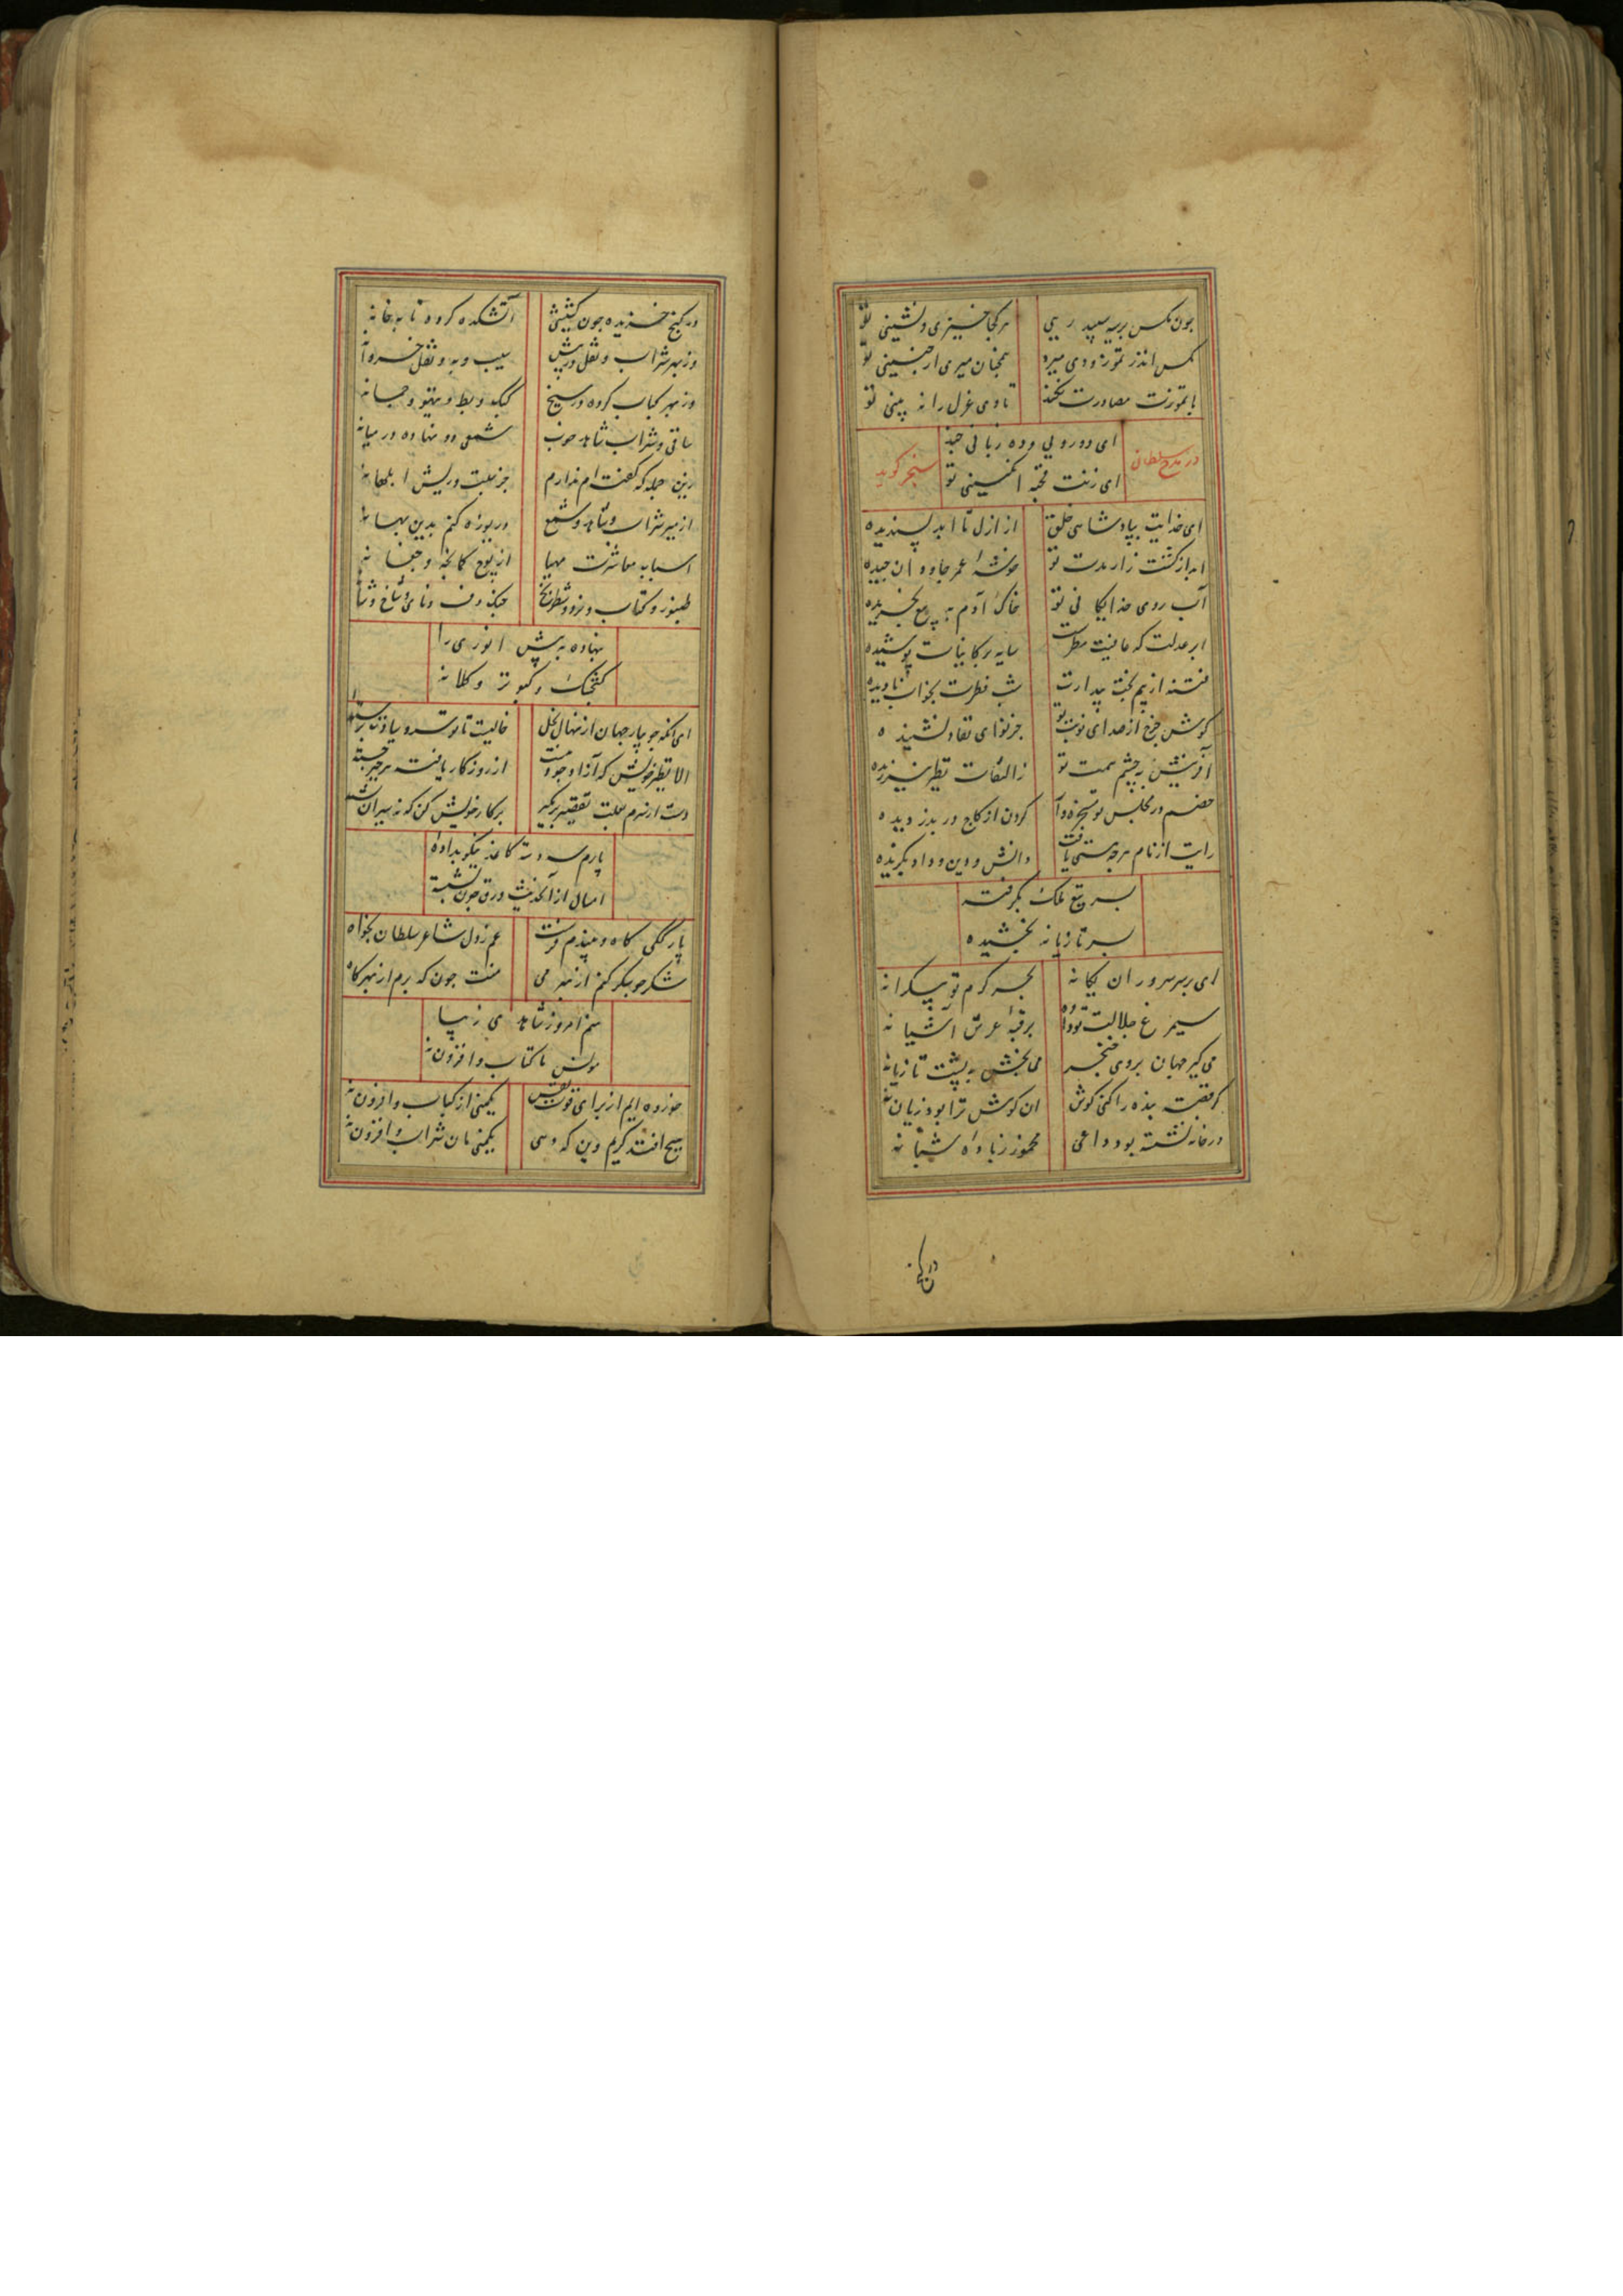 چون مکس بریه سپید ریی هر کجا خیزی و نشینی تو
مکس اندر تموز و دی میرد همچنان میری ار چنینی تو
با تموزت مصادرت نکند تا دی غزل را نه بینی تو
ای دو رویی و ده زبانی چند
ای زنت قحبه انکبینی تو
در مدح سلطان سنجر کوید
ای خدایت بپادشاهی خلق از ازل تا ابد پسندیده
ابد از کشت زار مدت تو خوشهٔ عمر جاودان چیده
آب روی خدایکانی تو خاک آدم به بیع بخریده
ابر عدلت که عافیت مطرست سایه بر کاینات پوشیده
فتنه از بیم بخت بیدارت شب فطرت بخواب نادیده
کوش چرخ از صدای نوبت تو جز نوای بقا و نشنیده
آفرینش به چشم همت تو ز التفات نظر نیرزیده
خصم در مجلس تو کردن از کاج در بدزدیده
رایت از نام هرچه هستی یافت دانش و دین و داد بکزیده
بسر تیغ ملک بکرفته
بسر تازیانه بخشیده
ای بر سر سروران یکانه بحر کرم تو بیکرانه
سیمرغ جلالت تو برقبهٔ عرش آشیانه
می کیر جهان بروی خنجر می بخش به پشت تازیانه
کر قصهٔ بنده را کنی کوش ان کوش ترا بود زیان نه
در خانه نشسته بود داعی مخمور ز بادهٔ شبانه
در کنج
در کنج خزیده چون کشیشی آتشکده کرده تابه خانه
وز بهر شراب و نقل در پیش سیب و به و نقل خسروانه
وز بهر کباب کرده در سیخ کبک و بط و تیهو و چمانه
ساقی و شراب شاهد خوب شمعی دو نهاده در میانه
زین جمله که کفته‌ام ندارم جز سبلت و ریش ابلهانه
از میر شراب و شاهد و شمع دریوزه کنم بدین بهانه
اسباب معاشرت مهیا از نوع کمانچه و چغانه
طنبور و کتاب و نرد و شطرنج چنک و دف و نای و شاخ و شانه
بنهاده به پیش انوری را
کفچک و کبوتر و کلانه
ای آنکه جویبار جهان از نهال بخل
الا نظیر خویش که آنرا وجود نیست از روزکار یافته هر چیز جسته
دست از نرم سبلت تقصیر برمکیر بر کار خویش کن که نه
پارم سه دسته کاغذ نیکو بداده
امسال از آنکذشت ورق چون نشسته
پارککی کاه و هیزمم فرست عم زدل شاعر سلطان بخواه
شکر جو بیکر کنم از بهر می منت چون که برم از بهر کاه
منم امروز شاهدی زیبا
مونس ما کتاب و افزون نه
خورده ایم از برای قوت نفس یکمنی از کباب و افزون نه
هیچ افتد کریم دین که دهی یکمنی مان شراب و افزون نه